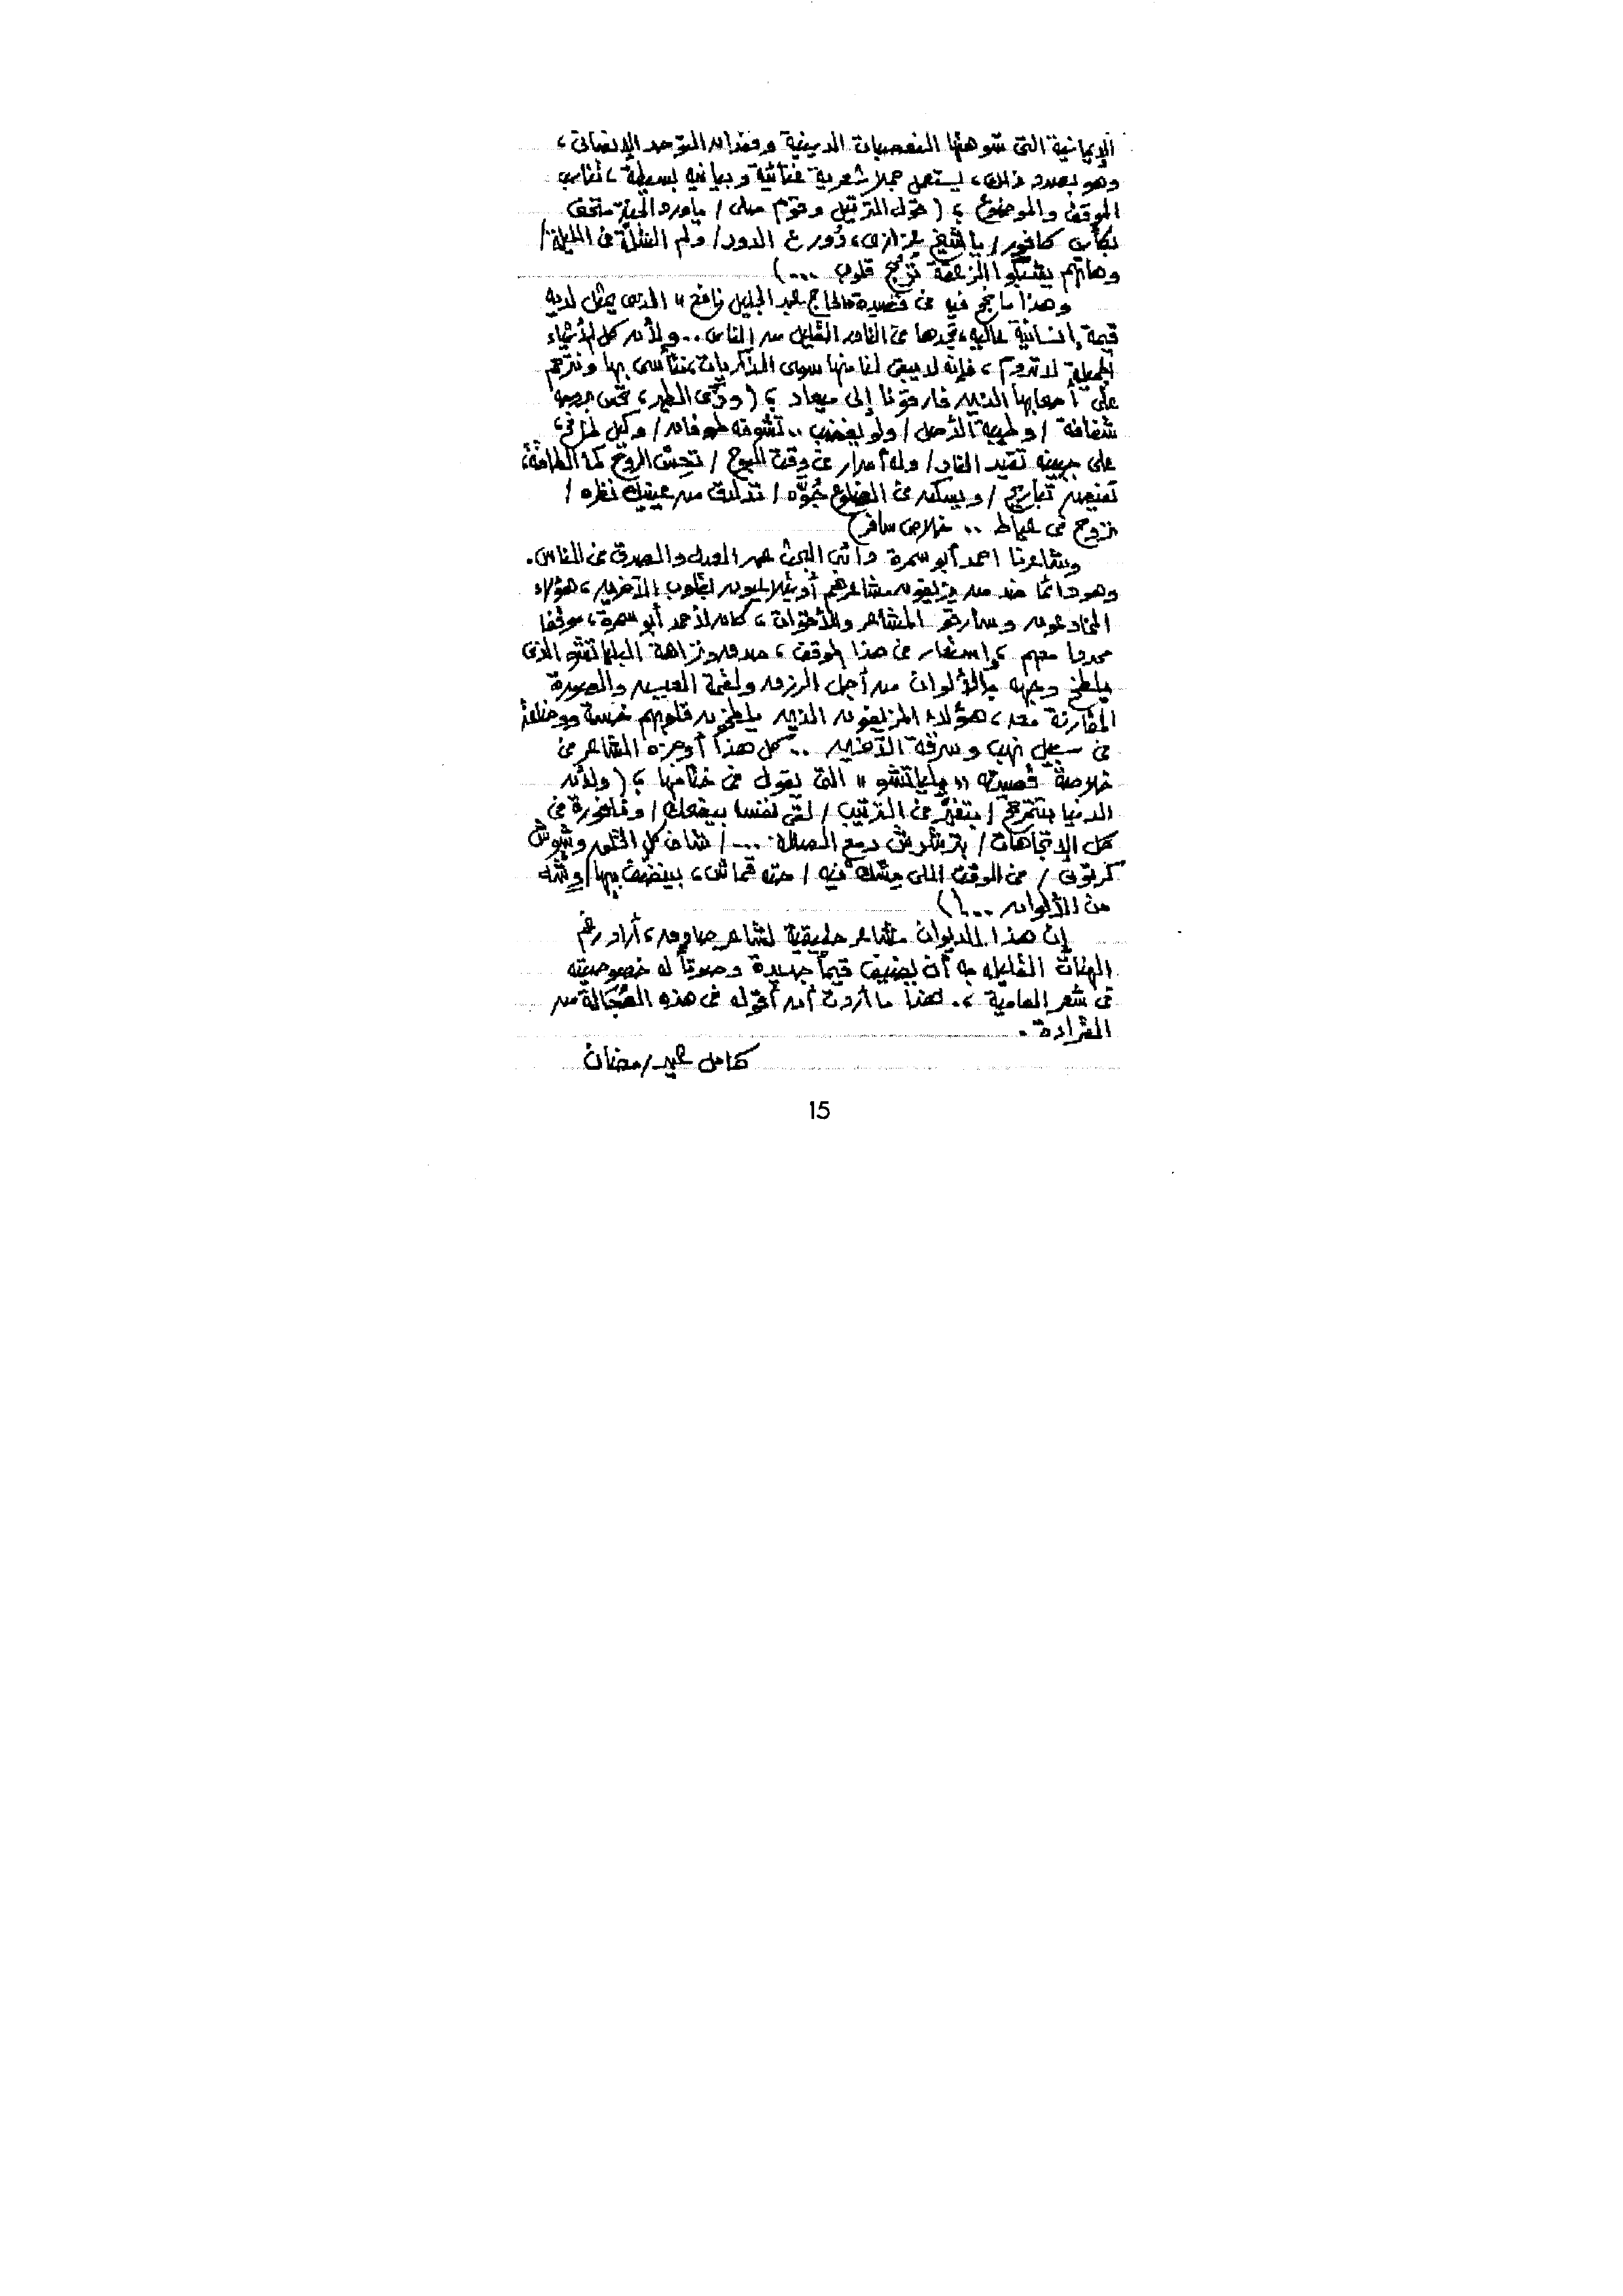 الإيمانية التى شوهتها التعصبات الدينية وفقدان التوحد الإنسانى ،
وهو بصدد ذلك ، يستعمل جملا شعرية غنائية وبيانيه بسيطة ، تناسب
الموقف والموضوع ؛ ( قول الترتيل وقوم صلى / ياورد الجنة متحفى
بكأس كافور / يا شيخ ، دور ع الدور / ولم الشلة فى الليلة /
وهاتهم يشبكوا الزعقة ترجح قلوب ... )
وهذا ما نجح فيه فى قصيدة « الحاج عبد الجليل نافع » الذى يمثل لديه
قيمة إنسانية عاليه ، تجدها فى النادر القليل من الناس .. ولأن كل الأشياء
الجميلة لا تدوم ، فإنه لا يبقى لنا منها سوى الذكريات ، نتأسى بها ونترحم
على أصحابها الذين فارقونا إلى ميعاد ؛ ( ودى الطير ،
شفافة / وطيبة الأصل / ولو يغضب .. تشوفه طوفان /
على جبينه تقيد النار / وله أسرار فى وقت البوح / تحس الروح كما الطاقة ،
تفيض تباريح / ويسكن فى الضلوع جوّه / تدلدق من عينيك نظره /
تروح فى عياط .. خلاص سافر )
وشاعرنا احمد أبو سمرة دائب البحث عن العدل والصدق فى الناس .
وهو دائما ضد من يزيفون مشاعرهم أو يتلاعبون بقلوب الآخرين ، هؤلاء
المخادعون وسارقو المشاعر والأقوات ، كان لأحمد أبو سمرة ، موقفا
محددا معهم ، واستعار فى هذا الموقف ، صدق ونزاهة البلياتشو الذى
يلطخ وجهه بالألوان من أجل الرزق ولقمة العيش والصورة
المقارنة معه ، هؤلاء المزيفون الذين يلطخون قلوبهم خسة ووضاعة
فى سبيل نهب وسرقة الآخرين .. كل هذا أوجزه الشاعر فى
خلاصة قصيدته « بلياتشو » التى يقول فى ختامها ؛ ( ولأن
الدنيا بتتمرجح / بتتغير فى الترتيب / لقى نفسه بيضحك / ونافورة فى
كل الإتجاهات / بترشرش دمع الصالة ... / شاف كل الخلق وشوش
كرتون / فى الوقت اللى مسك فيه / حتة قماش ، بينضف بيها / وشه
من الألوان ... ! )
إن هذا الديوان مشاعر حقيقية لشاعر صادق ، أراد رغم
الهنات القليله به أن يضيف قيماً جديدة وصوتاً له خصوصيته
فى شعر العامية ، . هذا ما أردت أن أقوله فى هذه العُجالة من
القراءة .
كامل عيد رمضان
15